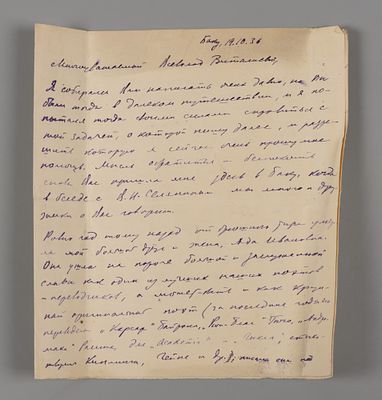 Баку, 19.10.36
Многоуважаемый Всеволод Витальевич,
Я собирался Вам написать очень давно, но Вы
были тогда в далеком путешествии, и я по-
пытался тогда своими силами справиться с
той задачей, о которой пишу далее, и разре-
шить которую я сейчас очень прошу мне
помочь. Мысль обратиться и беспокоить
снова Вас пришла мне здесь в Баку, когда
в беседе с В. И. мы много и
о Вас говорили.
Ровно год тому назад от брюшного тифа умер-
ла мой большой друг и жена, Ада Ивановна.
Она ушла на пороге большой и заслуженной
славы как один из лучших наших поэтов
-переводчиков, а может быть и как круп-
ный оригинальный поэт (за последние годы она
перевела "Корсар" Байрона, "Рюи Блаз" Гюго, "Андро-
маха" Расина для "Academia" и стихо-
творения Киплинга, Гейне и др.) писала она под